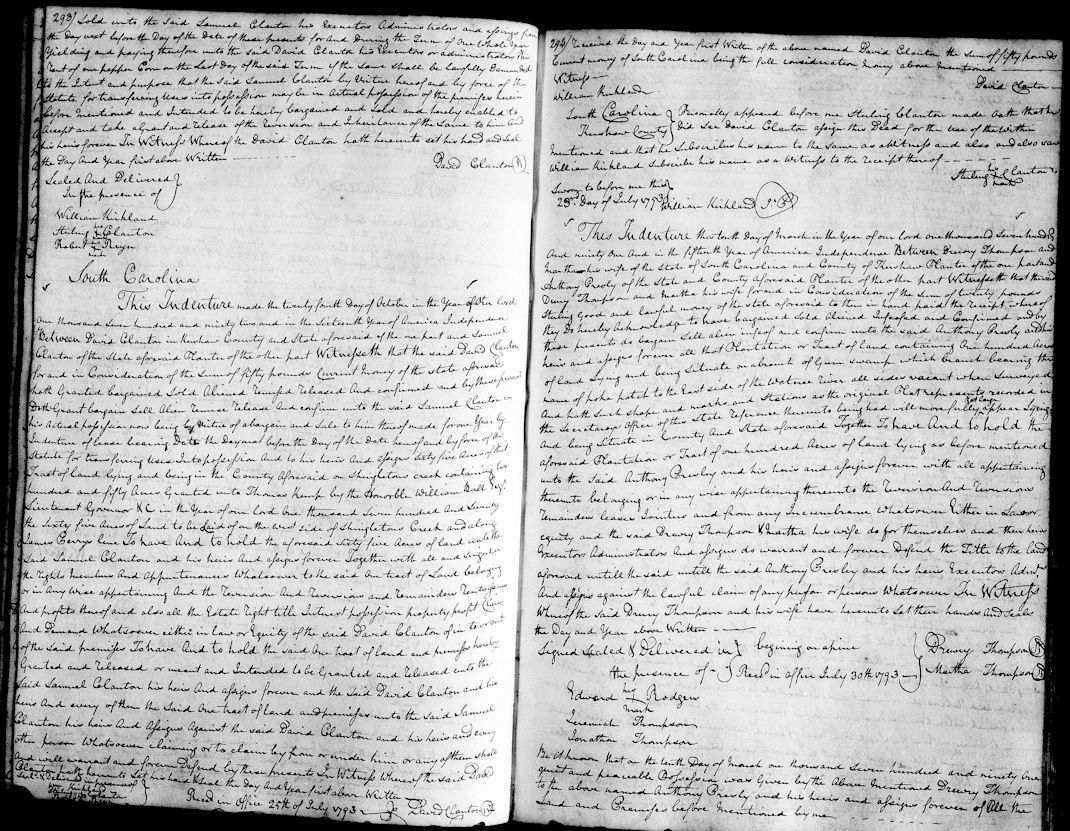 293/ Sold unto the said Samuel Clanton his Executors Administrators and assigns from
the day next before the Day of the Date of these presents for And During the Term of One Whole Year
Yielding and paying therefore unto the said David Clanton his Executors or administrators the
Rent of one pepper Corn on the Last Day of the said Term if the same shall be lawfully Demanded
to the Intent and purpose that the said Samuel Clanton by Virtue hereof and by force of the
Statute for transfering Uses into possession may be in Actual possession of the premises herein
before Mentioned and Intended to be hereby bargained and sold and hereby enabled to
Accept and take a Grant and Release of the Reversion and Inheritance of the Same to him And
his heirs forever In Witness Whereof the David Clanton hath hereunto set his hand and seal
the Day And Year first above Written
David Clanton
Sealed And Delivered
In the presence of
William Kirkland
Sterling Clanton
Robert Reyn
South Carolina
This Indenture made the twenty fourth Day of October in the Year of our lord
One thousand Seven hundred and ninety two and in the Sixteenth Year of America Independence
Between David Clanton in Kershaw County and State aforesaid of the one part and Samuel
Clanton of the State aforesaid Planter of the other part Witnesseth that the said David Clanton
for and in Consideration of the Sum of fifty pounds Current money of the state aforesaid
hath Granted bargained Sold Aliened Remised Released And confirmed and by these presents
Doth Grant bargain Sell Alien Remise Release And confirm unto the said Samuel Clanton in
his Actual possession now being by Virtue of a bargain and Sale to him thereof made for one Year by
Indenture of lease bearing Date the Day next before the Day of the Date hereof and by force of the
Statute for transfering Uses into possession And to his heirs And assigns Sixty five Acres of that
Tract of land lying and being in the County Aforesaid on Shingletons creek containing
hundred and fifty Acres Granted unto Thomas Kemp by the Honorble William Bull Esqr
Lieutenant Governor &C in the Year of our lord One thousand Seven hundred And Seventy
the Sixty five Acres of Land to be Laid of on the west side of Shingletons Creek and along
James Perrys line To have And to hold the aforesaid Sixty five Acres of land unto the
Said Samuel Clanton and his heirs And assigns forever Together with all and Singular
the Rights Members And Appurtenances Whatsoever to the said One tract of Land belonging
or in Any Wise appertaining And the Reversion And Reversions and Remainders Rents Issues
And profits thereof and also all the Estate right title Interest possession property profit Claim
And Demand Whatsoever either in law or Equity of the said David Clanton of in to or out
of the said premises To have And to hold the said One tract of land and premises hereby
Granted and Released or meant and Intended to be Granted and Released unto the
Said Samuel Clanton his heirs And assigns forever and the Said David Clanton and his
heirs And every of them the Said One tract of land and premises unto the Said Samuel
Clanton his heirs And Assigns Against the said David Clanton and his heirs and every
other person Whatsoever claiming or to claim by from or under him or any of them shall
And will warrant and forever Defend by these presents In Witness Whereof the said David
Clanton hath hereunto Set his hand & Seal the Day And Year first above Written
Recd in Office 25th of July 1793
David Clanton
294/ Received the Day and Year first Written of the above named David Clanton the Sum of fifty pounds
Current money of South Carolina being the full consideration money above Mentioned
Witness
David Clanton
William Kirkland
South Carolina
Kershaw County
Personally appeared before me Sterling Clanton made oath that he
did See David Clanton assign this Deed for the use of the Within
mentioned and that he Subscribes his name to the same as a Witness and also and also saw
William Kirkland Subscribe his name as a Witness to the receipt thereof
Sterling his mark Clanton
Sworn to before me this
25d Day of July 1793
William Kirkland J.P.
This Indenture this tenth Day of March in the Year of our lord one thousand Seven hundred
And ninety One And in the fifteenth Year of America Independence Between Drewry Thompson and
Martha his wife of the State of South Carolina and County of Kershaw Planter of the one part and
Anthony Presly of the State and County aforesaid Planter of the other part Witnesseth that the said
Drury Thompson and Martha his wife for and in Consideration of the Sum of twenty pounds
Sterling Good and lawful money of the State aforesaid to them in hand paid the receipt whereof
they Do hereby Acknowledge to have bargained Sold Aliened Infeofed and Confirmed and by
these presents do bargain Sell alien infeof and confirm unto the said Anthony Presly and his
heirs and assigns forever all that Plantation or Tract of land containing One hundred Acres
of land lying and being Situate on a branch of Gum Swamp which branch bearing the
name of poke patch to the East side of the Wateree River all sides vacant when Surveyed
And hath Such shape and marks and Stations as the original Plat represents recorded in
the Secretarys Office of this State Reference thereunto being had will more fully appear lying
And being Situate in County And State aforesaid Together To have And to hold the
aforesaid Plantation or Tract of one hundred Acres of land lying as before mentioned
unto the Said Anthony Presley and his heirs and assigns forever with all appertaining
thereunto belonging or in any wise appertaining thereunto the Reversion And Reversions
Remainders leases Jointers and from any incumbrance whatsoever Either in Law or
equity and the said Drewry Thompson & Martha his wife do for themselves and their heirs
Executors Administrators And assigns do warrant and forever Defend the Title to the land
aforesaid untill the said untill the said Anthony Presley and his heirs Executors Admrs
And assigns against the lawful claim of any person or persons Whatsoever In Witness
Whereof the said Drewry Thompson and his wife have hereunto Set their hands And Seals
the Day and Year above Written
Signed Sealed & Delivered in
the presence of
begining on a pine
Recd in office July 30th 1793
Drewry Thompson
Martha Thompson
Edward his mark Rodgers
Jeremiah Thompson
Jonathan Thompson
Be it known that on the tenth Day of March one thousand Seven hundred and ninety One
quiet and peaceable Possession was Given by the Above Mentioned Drewry Thompson
to the above named Anthony Presley and his heirs and assigns forever of All the
Land and Premises before Mentioned by me